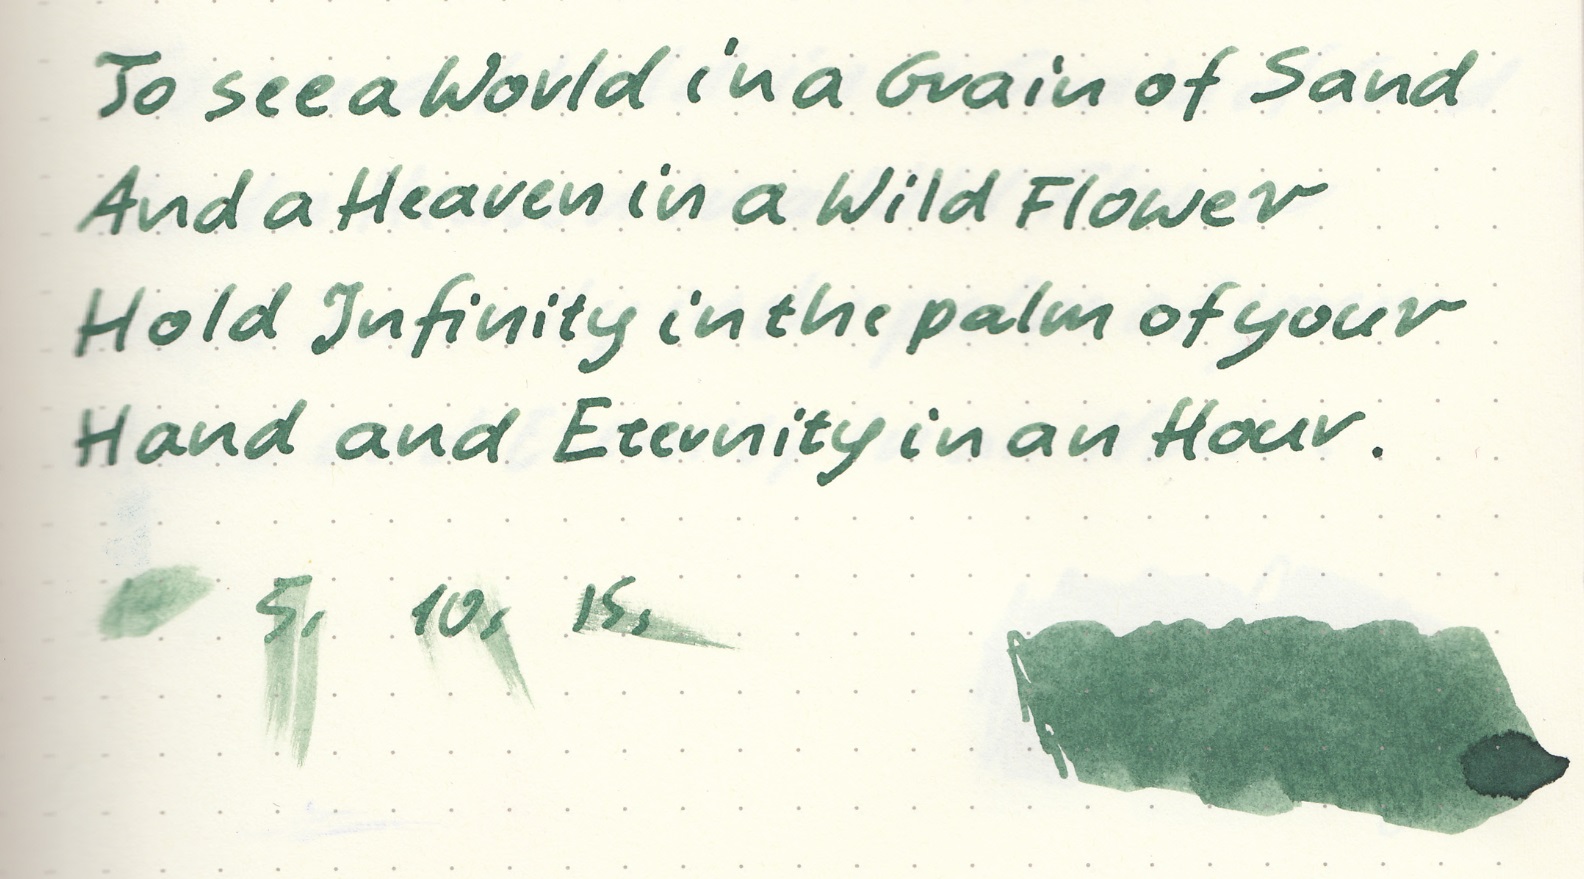 To see a World in a Grain of Sand
And a Heaven in a Wild Flower
Hold Infinity in the palm of your
Hand and Eternity in an Hour.
5s 10s 15s